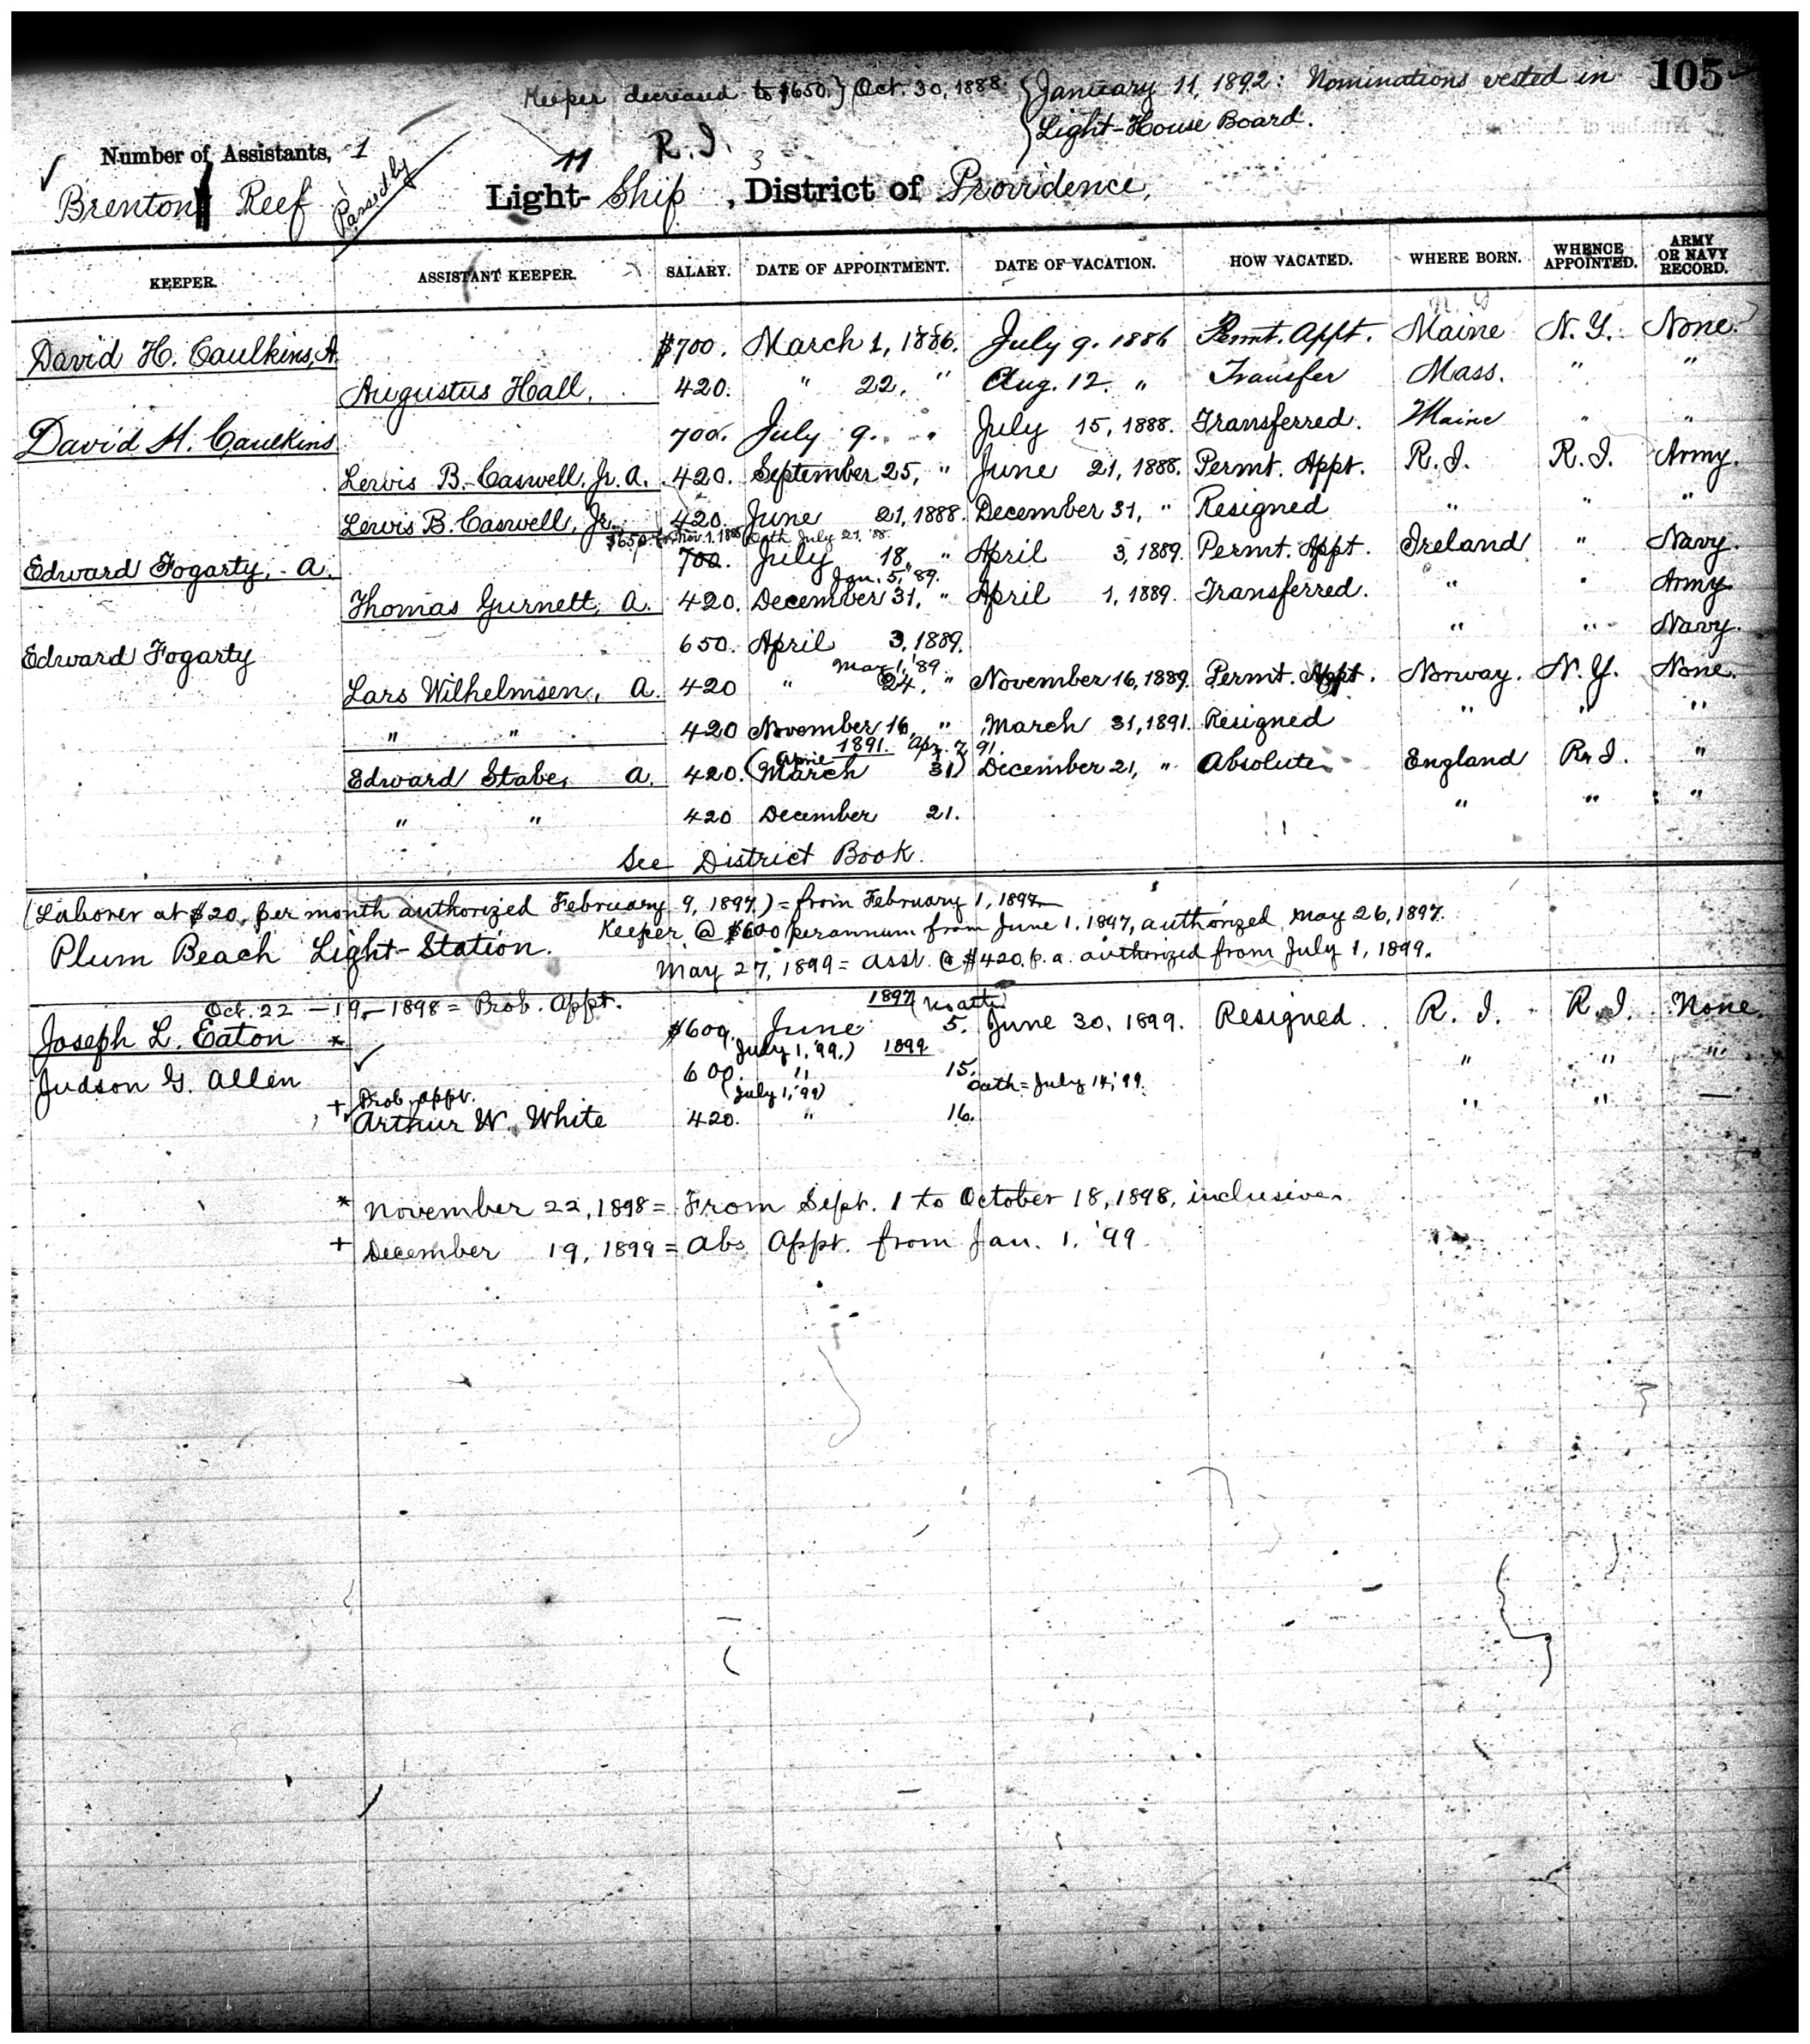 Keeper decreased to $650.} Oct. 30, 1888. {January 11, 1892: Nominations vested in 105
Light-House Board.
Number of Assistants, 1
11 R. I. 3
Brenton Reef Light-Ship, District of Providence,
KEEPER. ASSISTANT KEEPER. SALARY. DATE OF APPOINTMENT. DATE OF VACATION. HOW VACATED. WHERE BORN. WHENCE APPOINTED. ARMY OR NAVY RECORD.
David H. Caulkins, A. $700. March 1, 1886. July 9. 1886 Permt. Appt. Maine N. Y. None.
Augustus Hall. 420. " 22, " Aug. 12. " Transfer Mass. " "
David H. Caulkins 700. July 9. " July 15, 1888. Transferred. Maine " "
Lewis B. Caswell, Jr. A. 420. September 25, " June 21, 1888. Permt. Appt. R. I. R. I. Army.
Lewis B. Caswell, Jr. 420. June 21, 1888. December 31, " Resigned " " "
$650. Nov. 1, 1888 Oath July 21, '88.
Edward Fogarty, - A. 700. July 18, " April 3, 1889. Permt. Appt. Ireland " Navy.
Jan. 5, '89.
Thomas Gurnett, A. 420. December 31, " April 1, 1889. Transferred. " " Army
Edward Fogarty 650. April 3, 1889. " " Navy.
May 1, '89
Lars Wilhelmsen, A. 420 " 24. " November 16, 1889. Permt. Appt. Norway. N. Y. None.
" " 420 November 16, " March 31, 1891. Resigned " " "
1891. Apr. 7, 91.
April
Edward Stabe, A. 420. (March 31) December 21, " Absolute England R. I. "
" " 420 December 21. " " "
See District Book.
(Laborer at $20. per month authorized February 9, 1897.) = from February 1, 1897
Keeper @ $600 per annum from June 1, 1897, authorized May 26, 1897.
Plum Beach Light-Station.
May 27, 1899 = Asst. @ $420. p. a. authorized from July 1, 1899.
Oct. 22 - 19 - 1898 = Prob. Appt. 1897
Joseph L. Eaton * $600. June 5. June 30, 1899. Resigned. R. I. R. I. None.
(July 1, '99.) 1899
Judson G. Allen 600. " 15. " " "
Prob. Appt. (July 1, '99) Oath = July 14, '99.
+ Arthur W. White 420. " 16. " " —
* November 22, 1898 = From Sept. 1 to October 18, 1898, inclusive.
+ December 19, 1899 = Abs. Appt. from Jan. 1, '99.